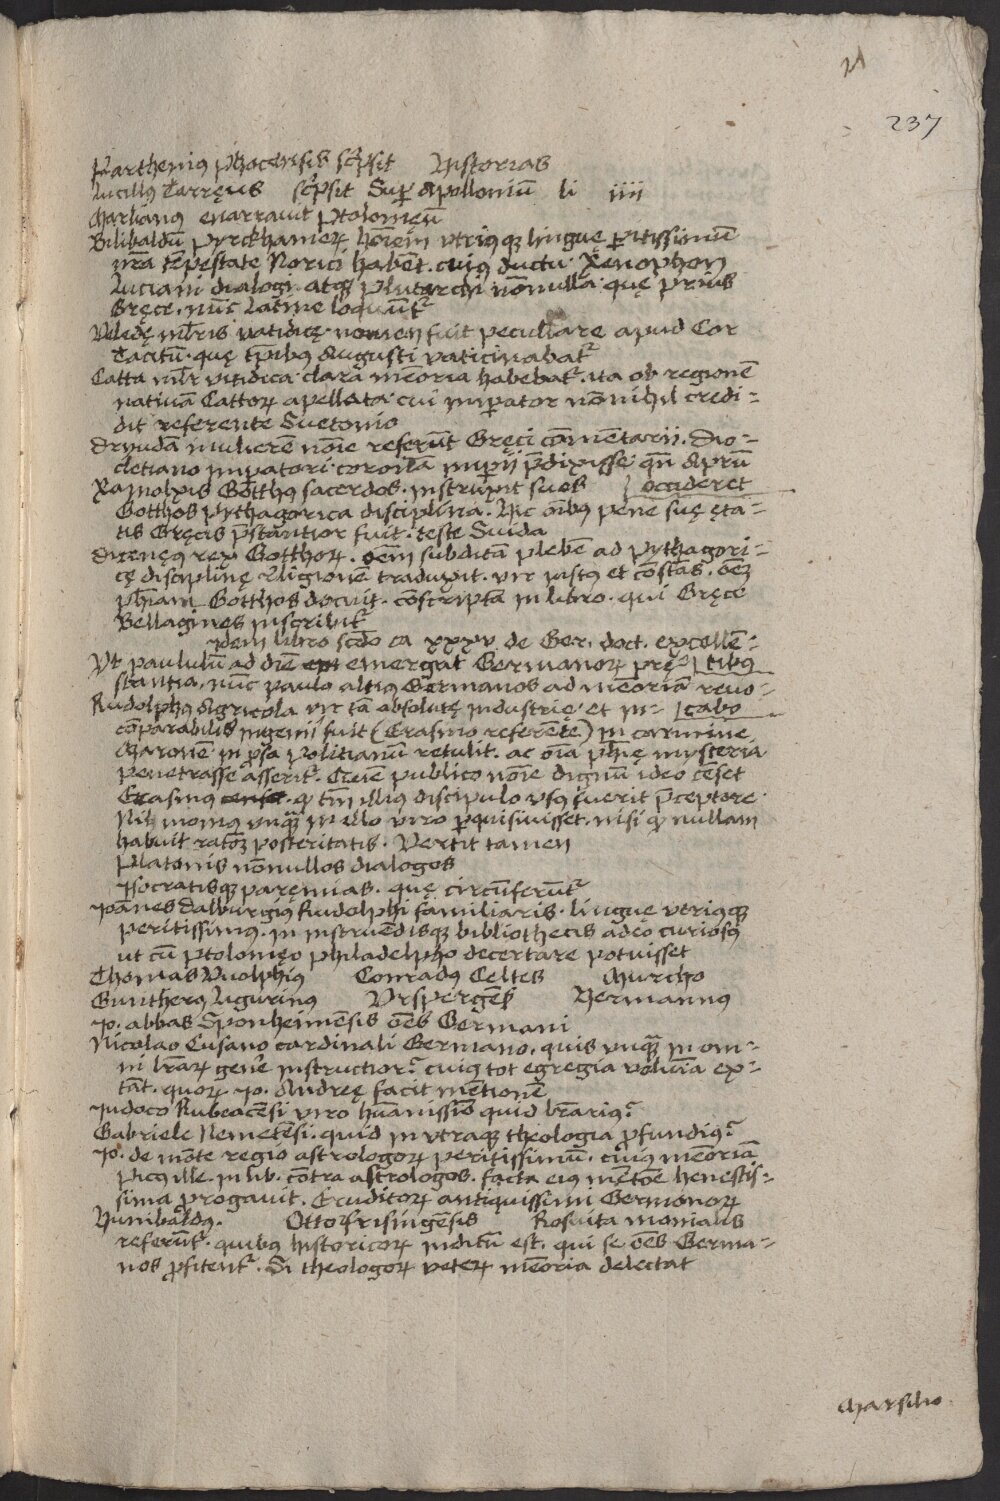 237
Parthenius Phocensis scripsit Historias
Lucillus Tarręus scripsit Super Apollonium li iiii
Marlianus enarravit Ptolomeum
Bilibaldum Pyrckhamerum hominem utriusque linguę peritissimum
nostra tempestate Norici habent. cuius ductu Xenophon
Luciani dialogi. atque Plutarchi nonnulla quę prius
Gręce, nunc Latine loquuntur
Veledę mulieris vatidicę nomen fuit peculiare apud Cor
Tacitum. quę temporibus Augusti vaticinabatur
Catta mulier vatidica clara memoria habebatur. ita ob regionem
nativam Cattorum apellata cui imperator nonnihil credi=
dit referente Suetonio
Dryudam mulierem nomine referunt Gręci commentarii. Dio=
cletiano imperatori coronam imperii prędixisse quum Aprum
Xamolxis Gotthus sacerdos. instruxit suos occideret
Gotthos Pythagorica disciplina. Hic omnibus pene suę ęta=
tis Gręcis pręstantior fuit. teste Suida
Diceneus rex Gotthorum. omnem subditam plebem ad Pythagori=
cę disciplinę religionem traduxit. vir iustus et constans. omnem
philosophiam Gotthos docuit. conscriptam in libro. qui Gręce
Bellagines inscribitur
Idem libro secundo ca xxxv de Ger. doct. excellen=
Ut paululum ad diem emergat Germanorum prę= tibus
stantia, nunc paulo altius Germanos ad memoriam revo=
Rudolphus Agricola vir tam absolutę industrię et in= cabo
comparabilis ingenii fuit (Erasmo referente) in carmine
Maronem in prosa Politianum retulit. ac omnia philosophię mysteria
penetrasse asseritur. Quem publico nomine dignum ideo censet
Erasmus quod tantum illius discipulo usus fuerit pręceptore
Nihil momus unquam in illo viro perquisivisset. nisi quod nullam
habuit rationem posteritatis. Vertit tamen
Platonis nonnullos dialogos
Isocratisque paręnias. quę circunferuntur
Ioannes Dalburgius Rudolphi familiaris. lingue utriusque
peritissimus. in instruendisque bibliothecis adeo curiosus
ut cum Ptolomęo Philadelpho decertare potuisset
Thomas Vuolphius Conradus Celtes Murcho
Guntherus Ligurinus Urspergensis Hermannus
Io. abbas Sponheimensis omnes Germani
Nicolao Cusano cardinali Germano. quis unquam in om=
ni literarum genere instructior? cuius tot egregia volumina ex=
tant. quorum Io. Andreę facit mentionem
Iudoco Rubeacensi viro humanissimo quid literarius?
Gabriele Nemetensi. quid in utraque theologia profundius?
Io. de monte regio astrologorum peritissimum. cuius memoriam
Picus ille in lib. contra astrologos. facta eius mentione honestis=
sima progavit. Eruditorum antiquissimi Germanorum
Hunibaldus. Otto frisingensis Rosuita monialis
referuntur. quibus historicorum inditum est. qui se omnes Germa=
nos profitentur. Si theologorum veterum memoria delectat
Marsilio